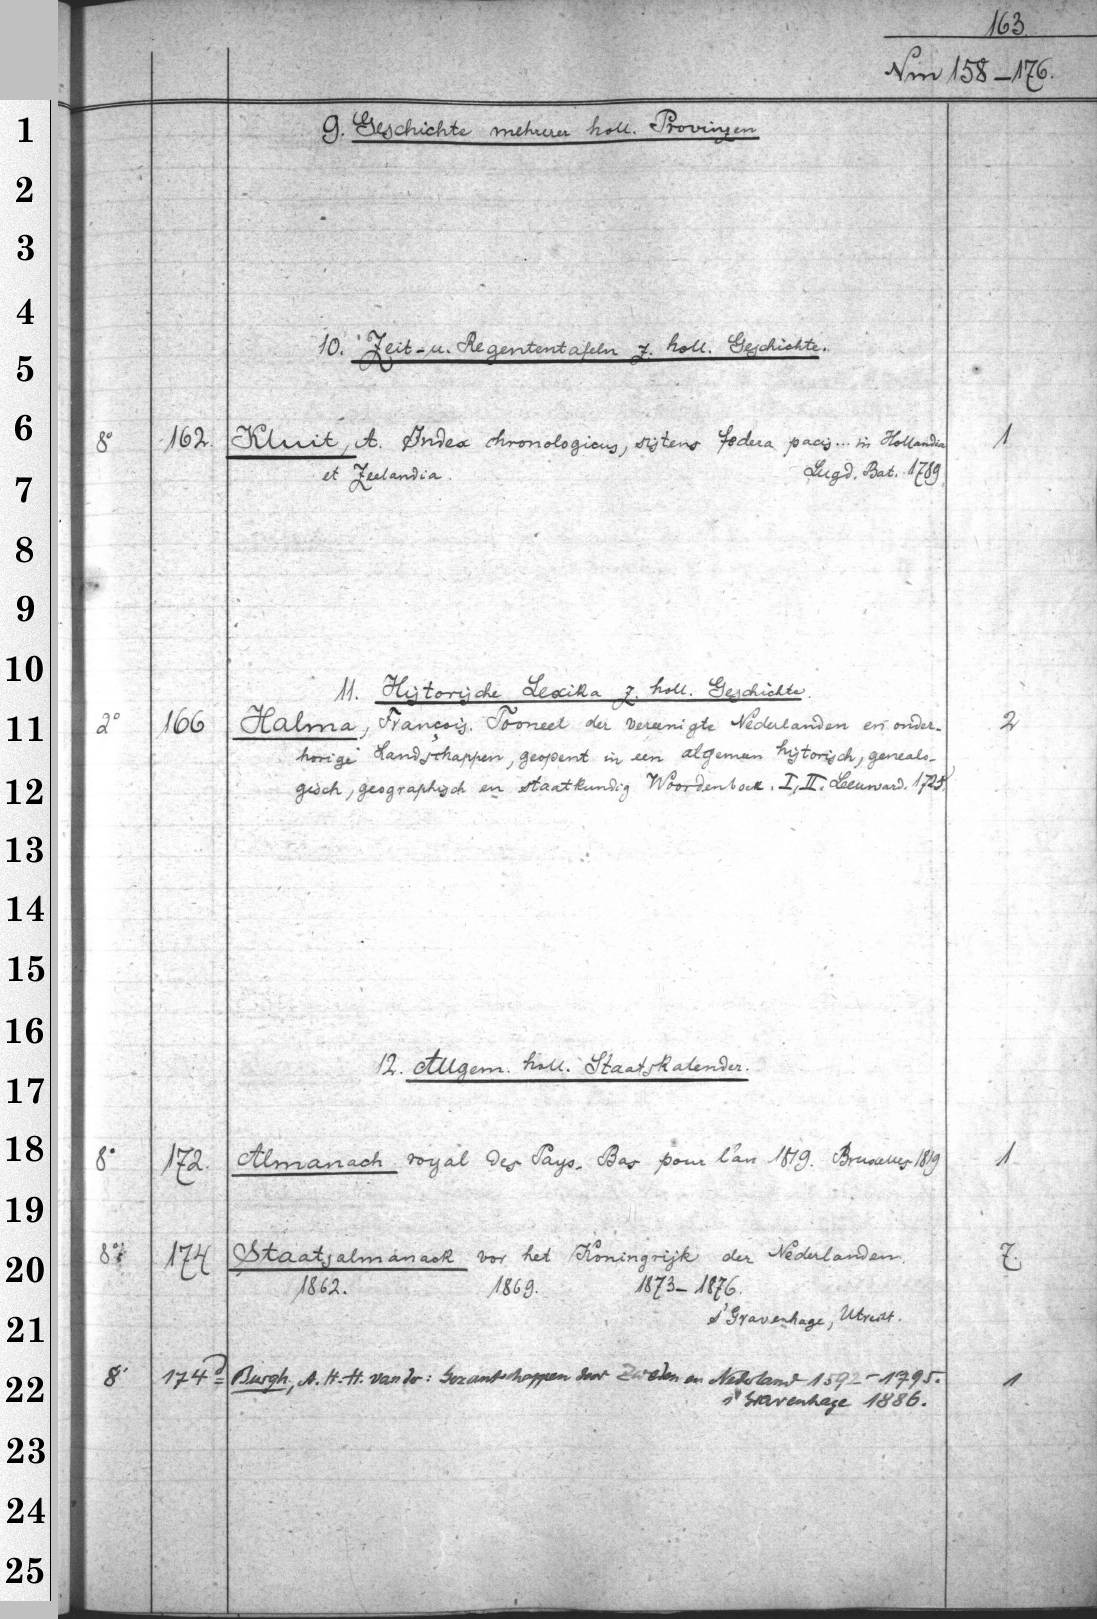 163
Nrn 158-176.
1
9. Geschichte mehrerer holl. Provinzen
2
3
4
10. Zeit- u. Regententafeln z. holl. Geschichte.
5
6
8° 162. Kluit, A. Index chronologicus, sistens fodera pacis... in Hollandia 1
et Zeelandia. Lugd. Bat. 1789
7
8
9
10
11. Historische Lexika z. holl. Geschichte.
11
2° 166 Halma, François. Tooneel der vereenigte Nederlanden en onder- 2
horige Landschappen, geopent in een algemeen historisch, genealo-
12
gisch, geographisch en staatkundig Woordenboek. I, II. Leeuward. 1725
13
14
15
16
12. Allgem. holl. Staatskalender.
17
18
8° 172. Almanach royal des Pays-Bas pour l'an 1819. Bruxelles 1819 1
19
8° 174 Staatsalmanack vor het Koningrijk der Nederlanden. 7.
20
1862. 1869. 1873-1876.
21
s'Gravenhage, Utrecht.
22
8° 174a Burgh, A. H. H. van dr: Gezantschappen door Zweden en Nederland 1592-1795. 1
s'Gravenhage 1886.
23
24
25